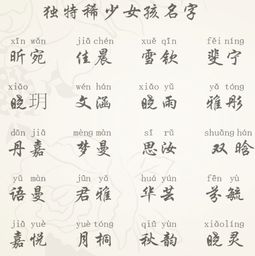 独特稀少女孩名字
xīn wǎn jiā chén xuě qīn fěi níng
昕宛 佳晨 雪钦 斐宁
xiǎo wén hán xiǎo yǔ yǎ tóng
晓玥 文涵 晓雨 雅彤
dān jiā mèng màn sī rǔ shuāng hán
丹嘉 梦曼 思汝 双晗
yǔ màn jūn yǎ huá yún fēn yù
语曼 君雅 华芸 芬毓
jiā yuè yuè tóng qiū yùn xiǎolíng
嘉悦 月桐 秋韵 晓灵